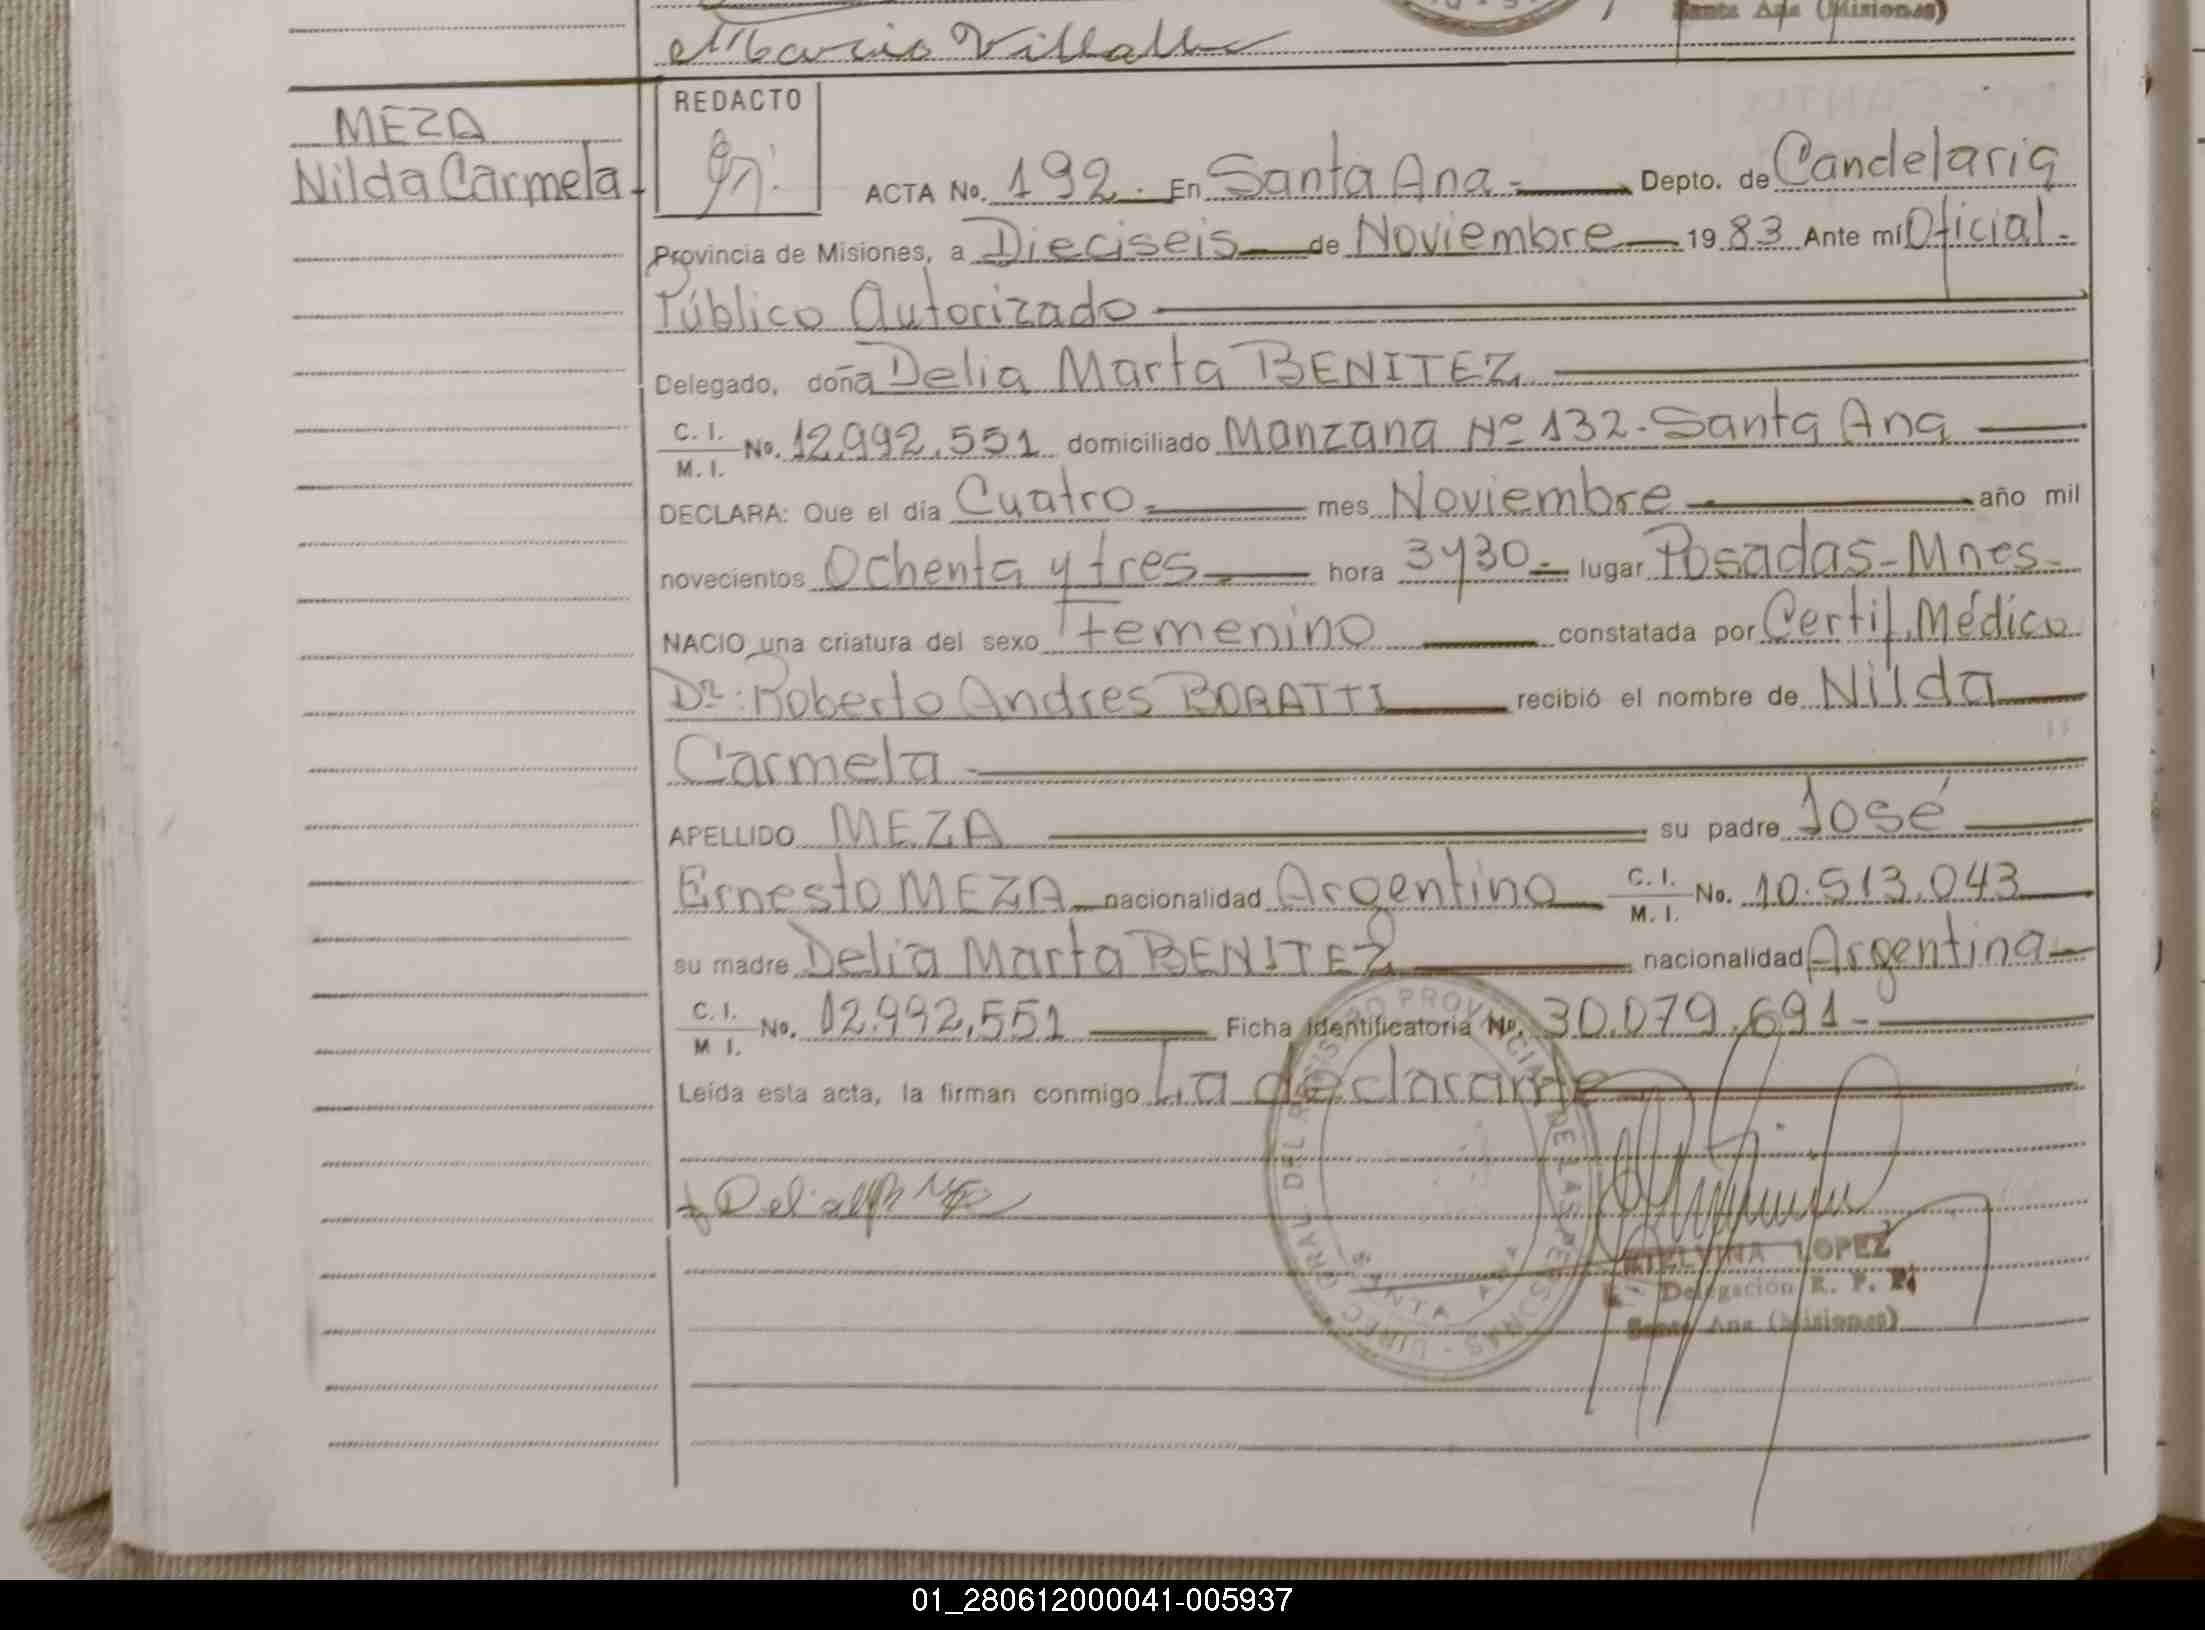 Santa Ana (Misiones)
REDACTO
MEZA
Nilda Carmela
ACTA No. 192. En Santa Ana - Depto. de Candelaria
Provincia de Misiones, a Dieciseis de Noviembre 1983 Ante mí Oficial.
Público Autorizado
Delegado, doña Delia Marta BENITEZ
C. I. / M. I. No. 12.992.551 domiciliado Manzana Nº 132 - Santa Ana
DECLARA: Que el día Cuatro mes Noviembre año mil
novecientos Ochenta y tres hora 3y30 - lugar Posadas - Mnes -
NACIO una criatura del sexo Femenino constatada por Certif. Médico
Dr: Roberto Andres BORATTI recibió el nombre de Nilda
Carmela
APELLIDO MEZA su padre José
Ernesto MEZA nacionalidad Argentino C. I. / M. I. No. 10.513.043
su madre Delia Marta BENITEZ nacionalidad Argentina
C. I. / M I. No. 12.992.551 Ficha Identificatoria No. 30.079.691 -
Leída esta acta, la firman conmigo La declarante
DIREC. GRAL. DEL REGISTRO PROVINCIAL DE LAS PERSONAS
SANTA ANA
LOPEZ
Delegación R. P. P.
Santa Ana (Misiones)
01_280612000041-005937